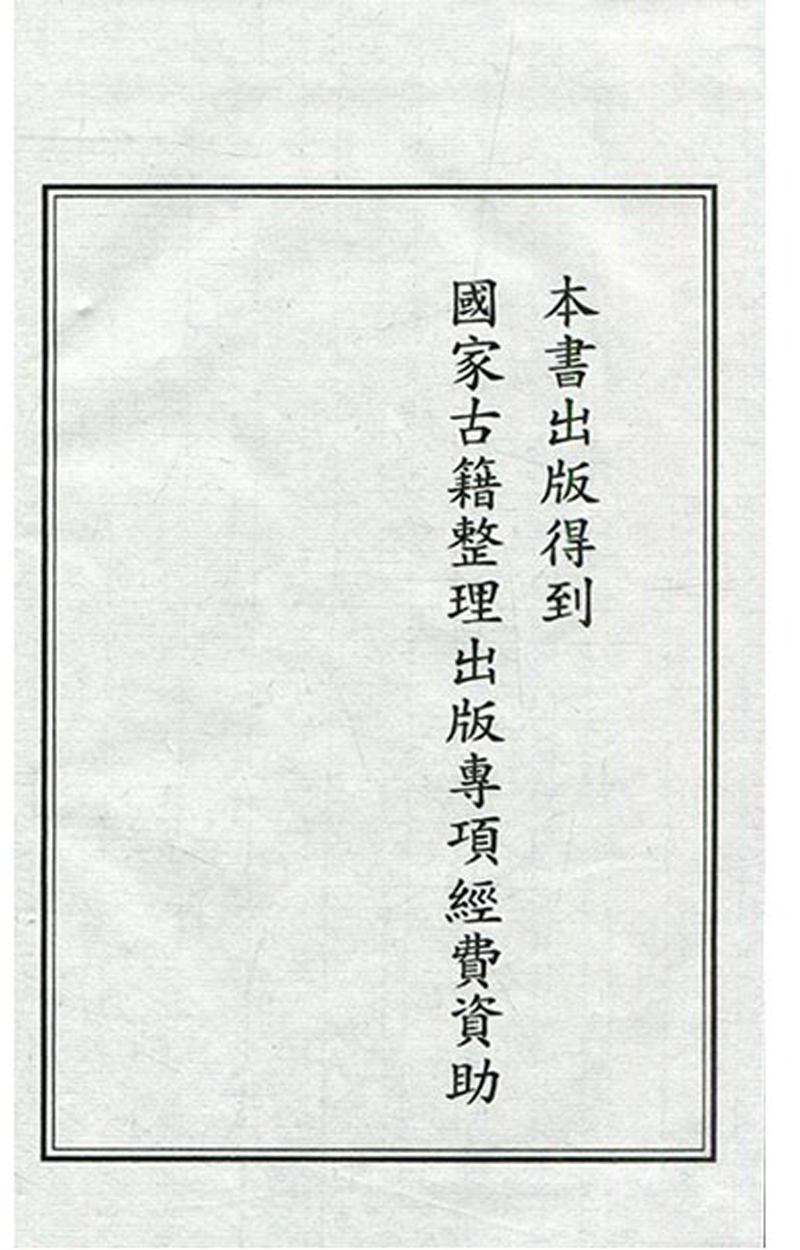 本書出版得到
國家古籍整理出版專項經費資助